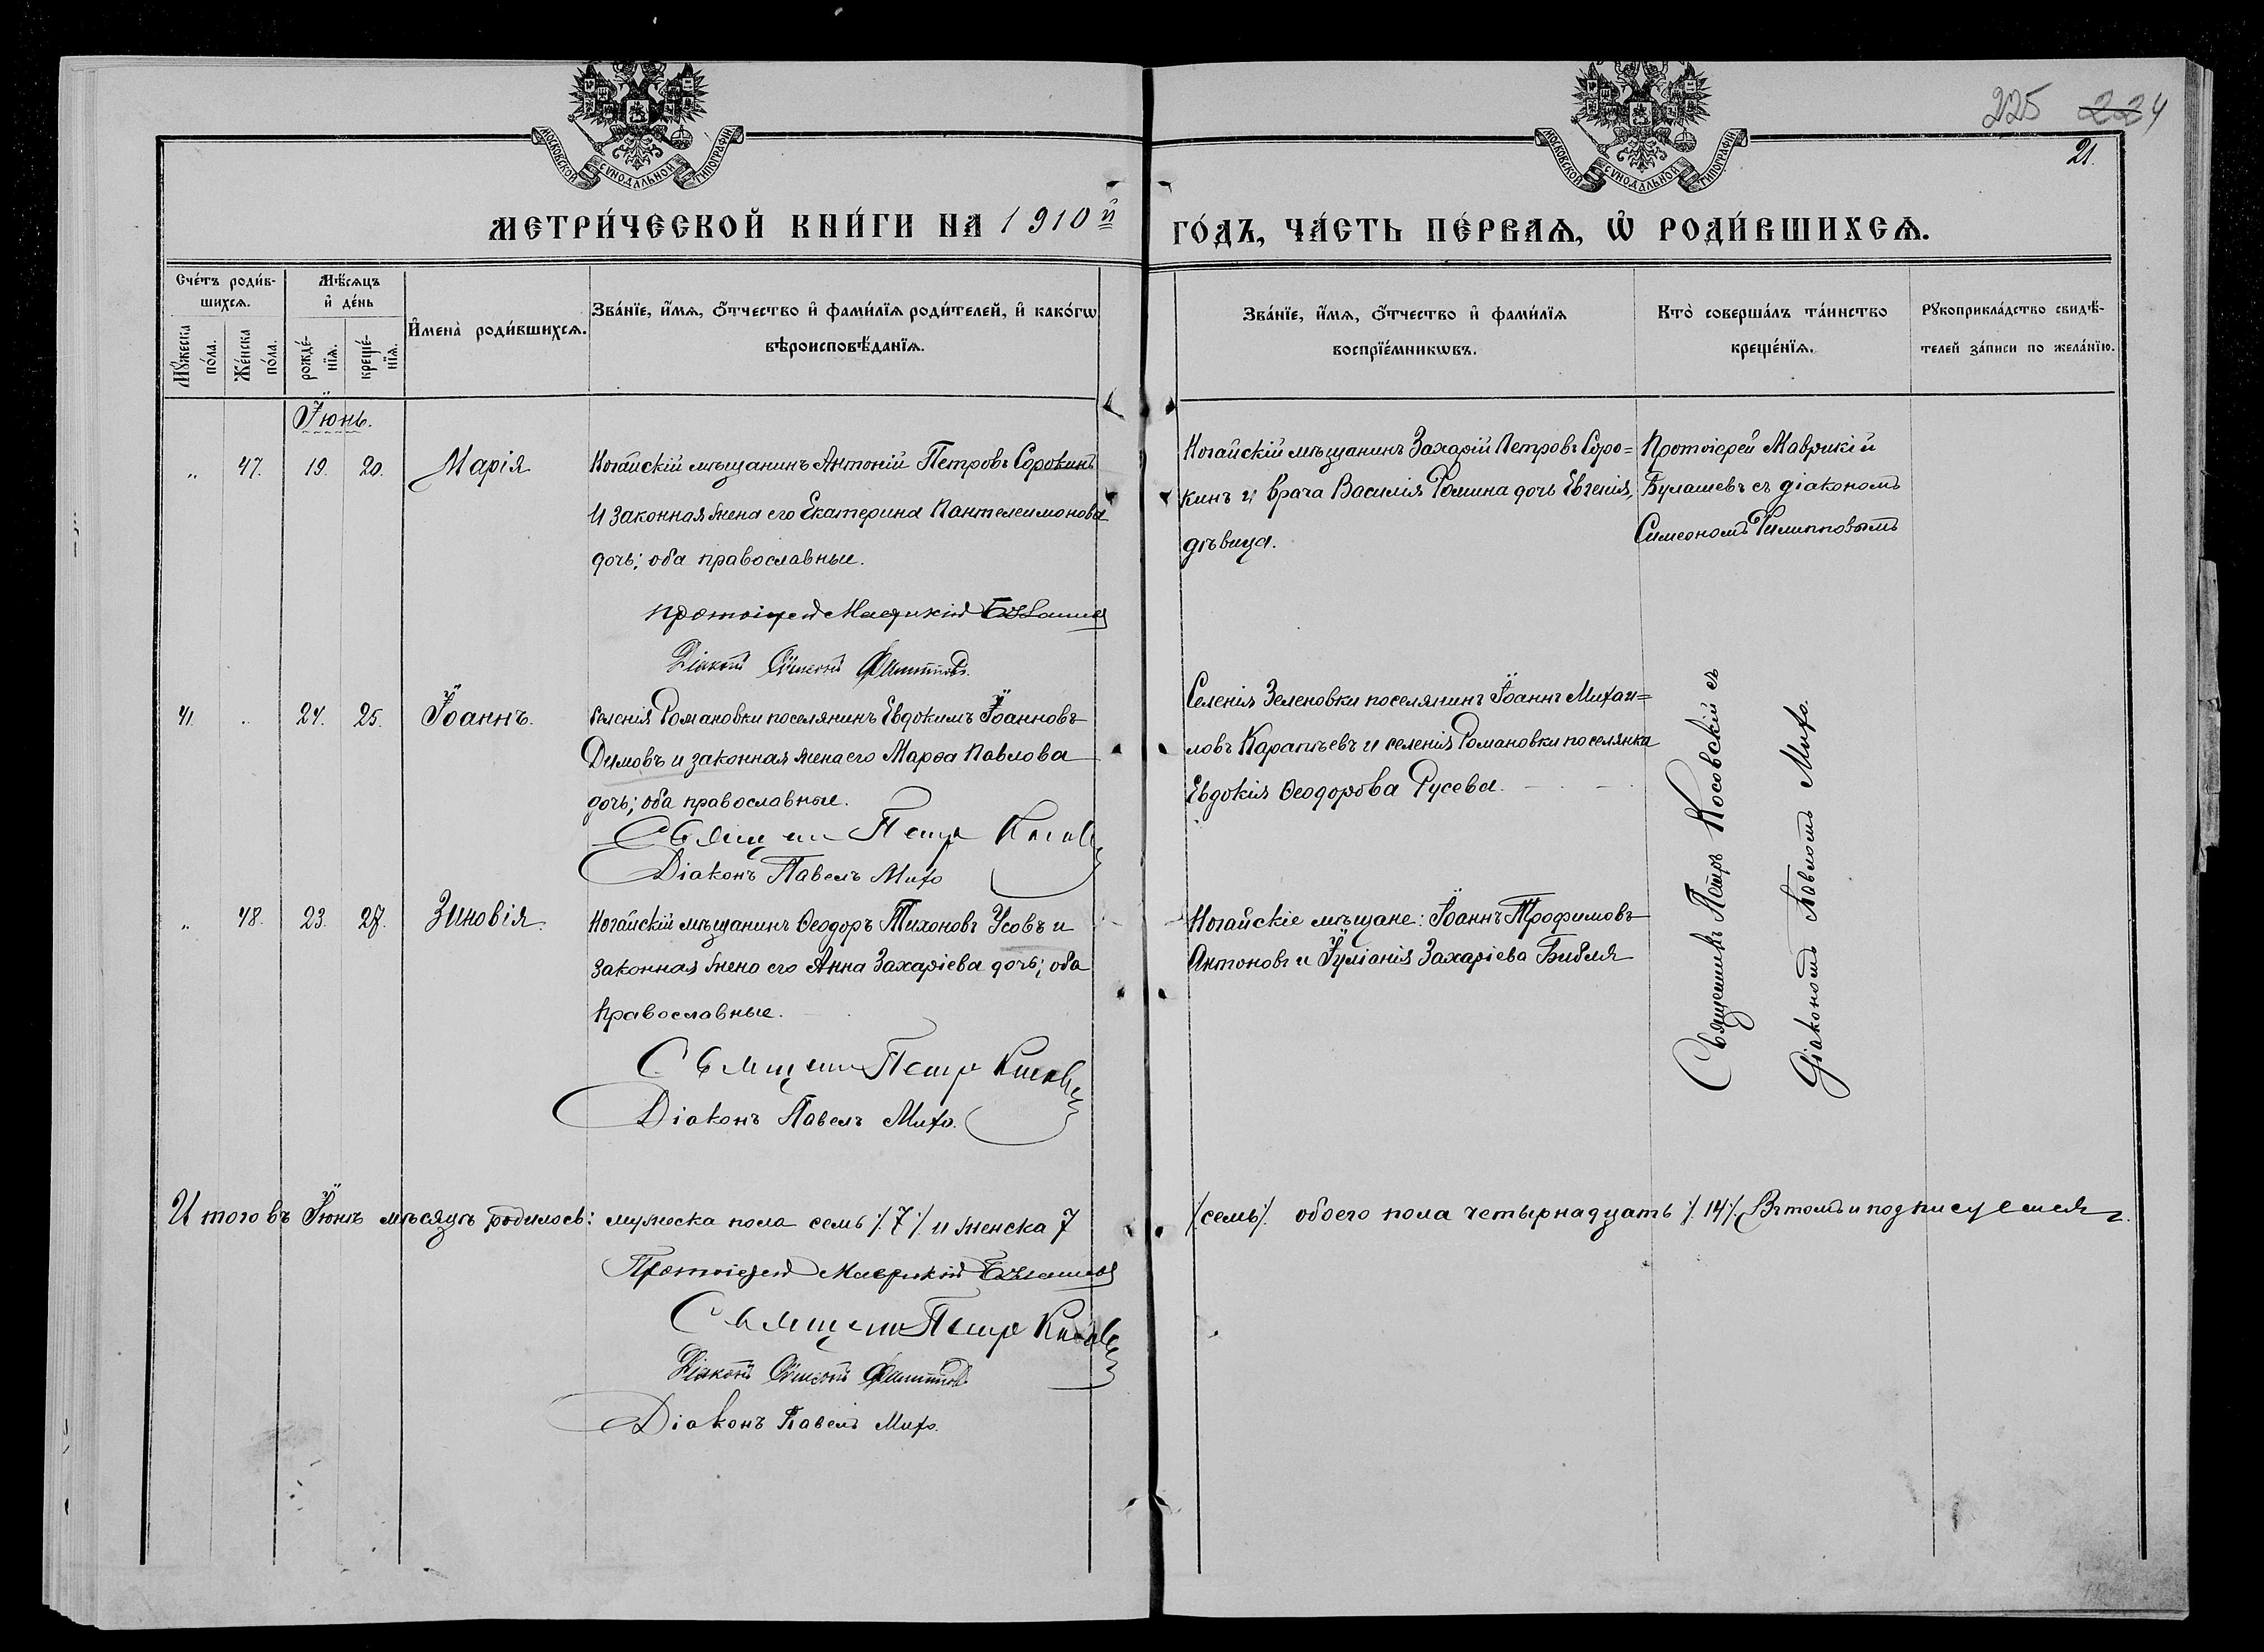 МОСКОВСКОЙ СѴНОДАЛЬНОЙ ТИПОГРАФІИ
МОСКОВСКОЙ СѴНОДАЛЬНОЙ ТИПОГРАФІИ
225 224
21.
МЕТРИ́ЧЕСКОЙ КНИ́ГИ НА 1910й
ГО́ДЪ, ЧА́СТЬ ПЕ́РВАѦ, Ѡ҆ РОДИ́ВШИХСѦ.
Сче́тъ роди́в-
шихсѧ.
Мꙋ́жеска
по́ла.
Же́нска
по́ла.
Мѣ́сѧцъ
и҆ де́нь
рожде́-
нїѧ.
креще́-
нїѧ.
И҆мена̀ роди́вшихсѧ.
Зва́нїе, и҆́мѧ, ѻ҆́тчество и҆ фами́лїѧ роди́телей, и҆ како́гѡ
вѣроисповѣ́данїѧ.
Зва́нїе, и҆́мѧ, ѻ҆́тчество и҆ фами́лїѧ
воспрїе́мникѡвъ.
Кто̀ соверша́лъ та́инство
креще́нїѧ.
Рꙋкоприкла́дство свидѣ́-
телей за́писи по жела́нїю.
Іюнь.
„ 47. 19. 20. Марія
Ногайскій мѣщанинъ Антоній Петровъ Сорокинъ
и законная жена его Екатерина Пантелеимонова
дочь; оба православные.
Протоіерей Маврикій Булашев
Діаконъ Симеонъ Филипповъ.
Ногайскій мѣщанинъ Захарій Петровъ Соро=
кинъ и врача Василія Ромина дочь Евгенія,
дѣвица.
Протоіерей Маврикій
Булашевъ съ діакономъ
Симеономъ Филипповымъ
41. „ 24. 25. Іоаннъ.
Селенія Романовки поселянинъ Евдокимъ Іоанновъ
Димовъ и законная жена его Марѳа Павлова
дочь; оба православные.
Священ Петр Косов
Діаконъ Павелъ Михо
Селенія Зеленовки поселянинъ Іоаннъ Михаи=
ловъ Карапѣевъ и селенія Романовки поселянка
Евдокія Ѳеодорова Русева.
Священникъ Петръ Косовскій съ
діакономъ Павломъ Михо.
„ 48. 23. 27. Зиновія.
Ногайскій мѣщанинъ Ѳеодоръ Тихоновъ Усовъ и
законная жена его Анна Захаріева дочь; оба
православные.
Священ Петр Косов
Діаконъ Павелъ Михо.
Ногайскіе мѣщане: Іоаннъ Трофимовъ
Антоновъ и Іуліанія Захаріева Библя
Итого въ Іюнѣ мѣсяцѣ родилось: мужеска пола семь /7/ и женска 7
/семь/. обоего пола четырнадцать /14/. Въ томъ и подписуемся
Протоіерей Маврикій Булашев
Священ Петр Косов
Діаконъ Симеонъ Филиппов
Діаконъ Павелъ Михо.